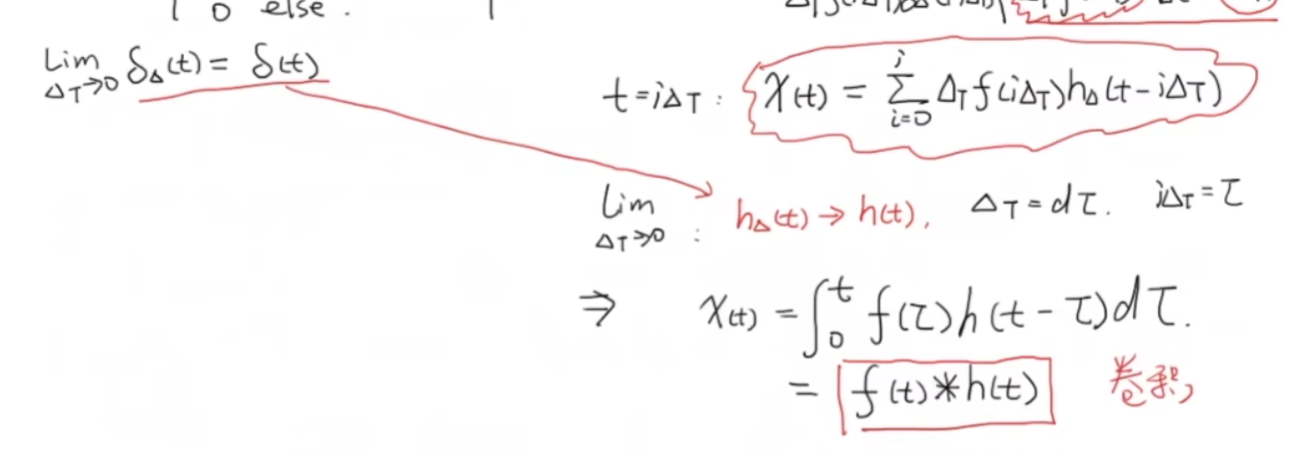 0 else.
Lim δ_Δ(t) = δ(t)
ΔT→0
t=iΔT: x(t) = Σ_{i=0}^{i} ΔT f(iΔT)h_Δ(t-iΔT)
Lim h_Δ(t) → h(t), ΔT=dτ. iΔT=τ
ΔT→0 :
⇒ x(t) = ∫_0^t f(τ)h(t-τ)dτ.
= f(t)*h(t) 卷积